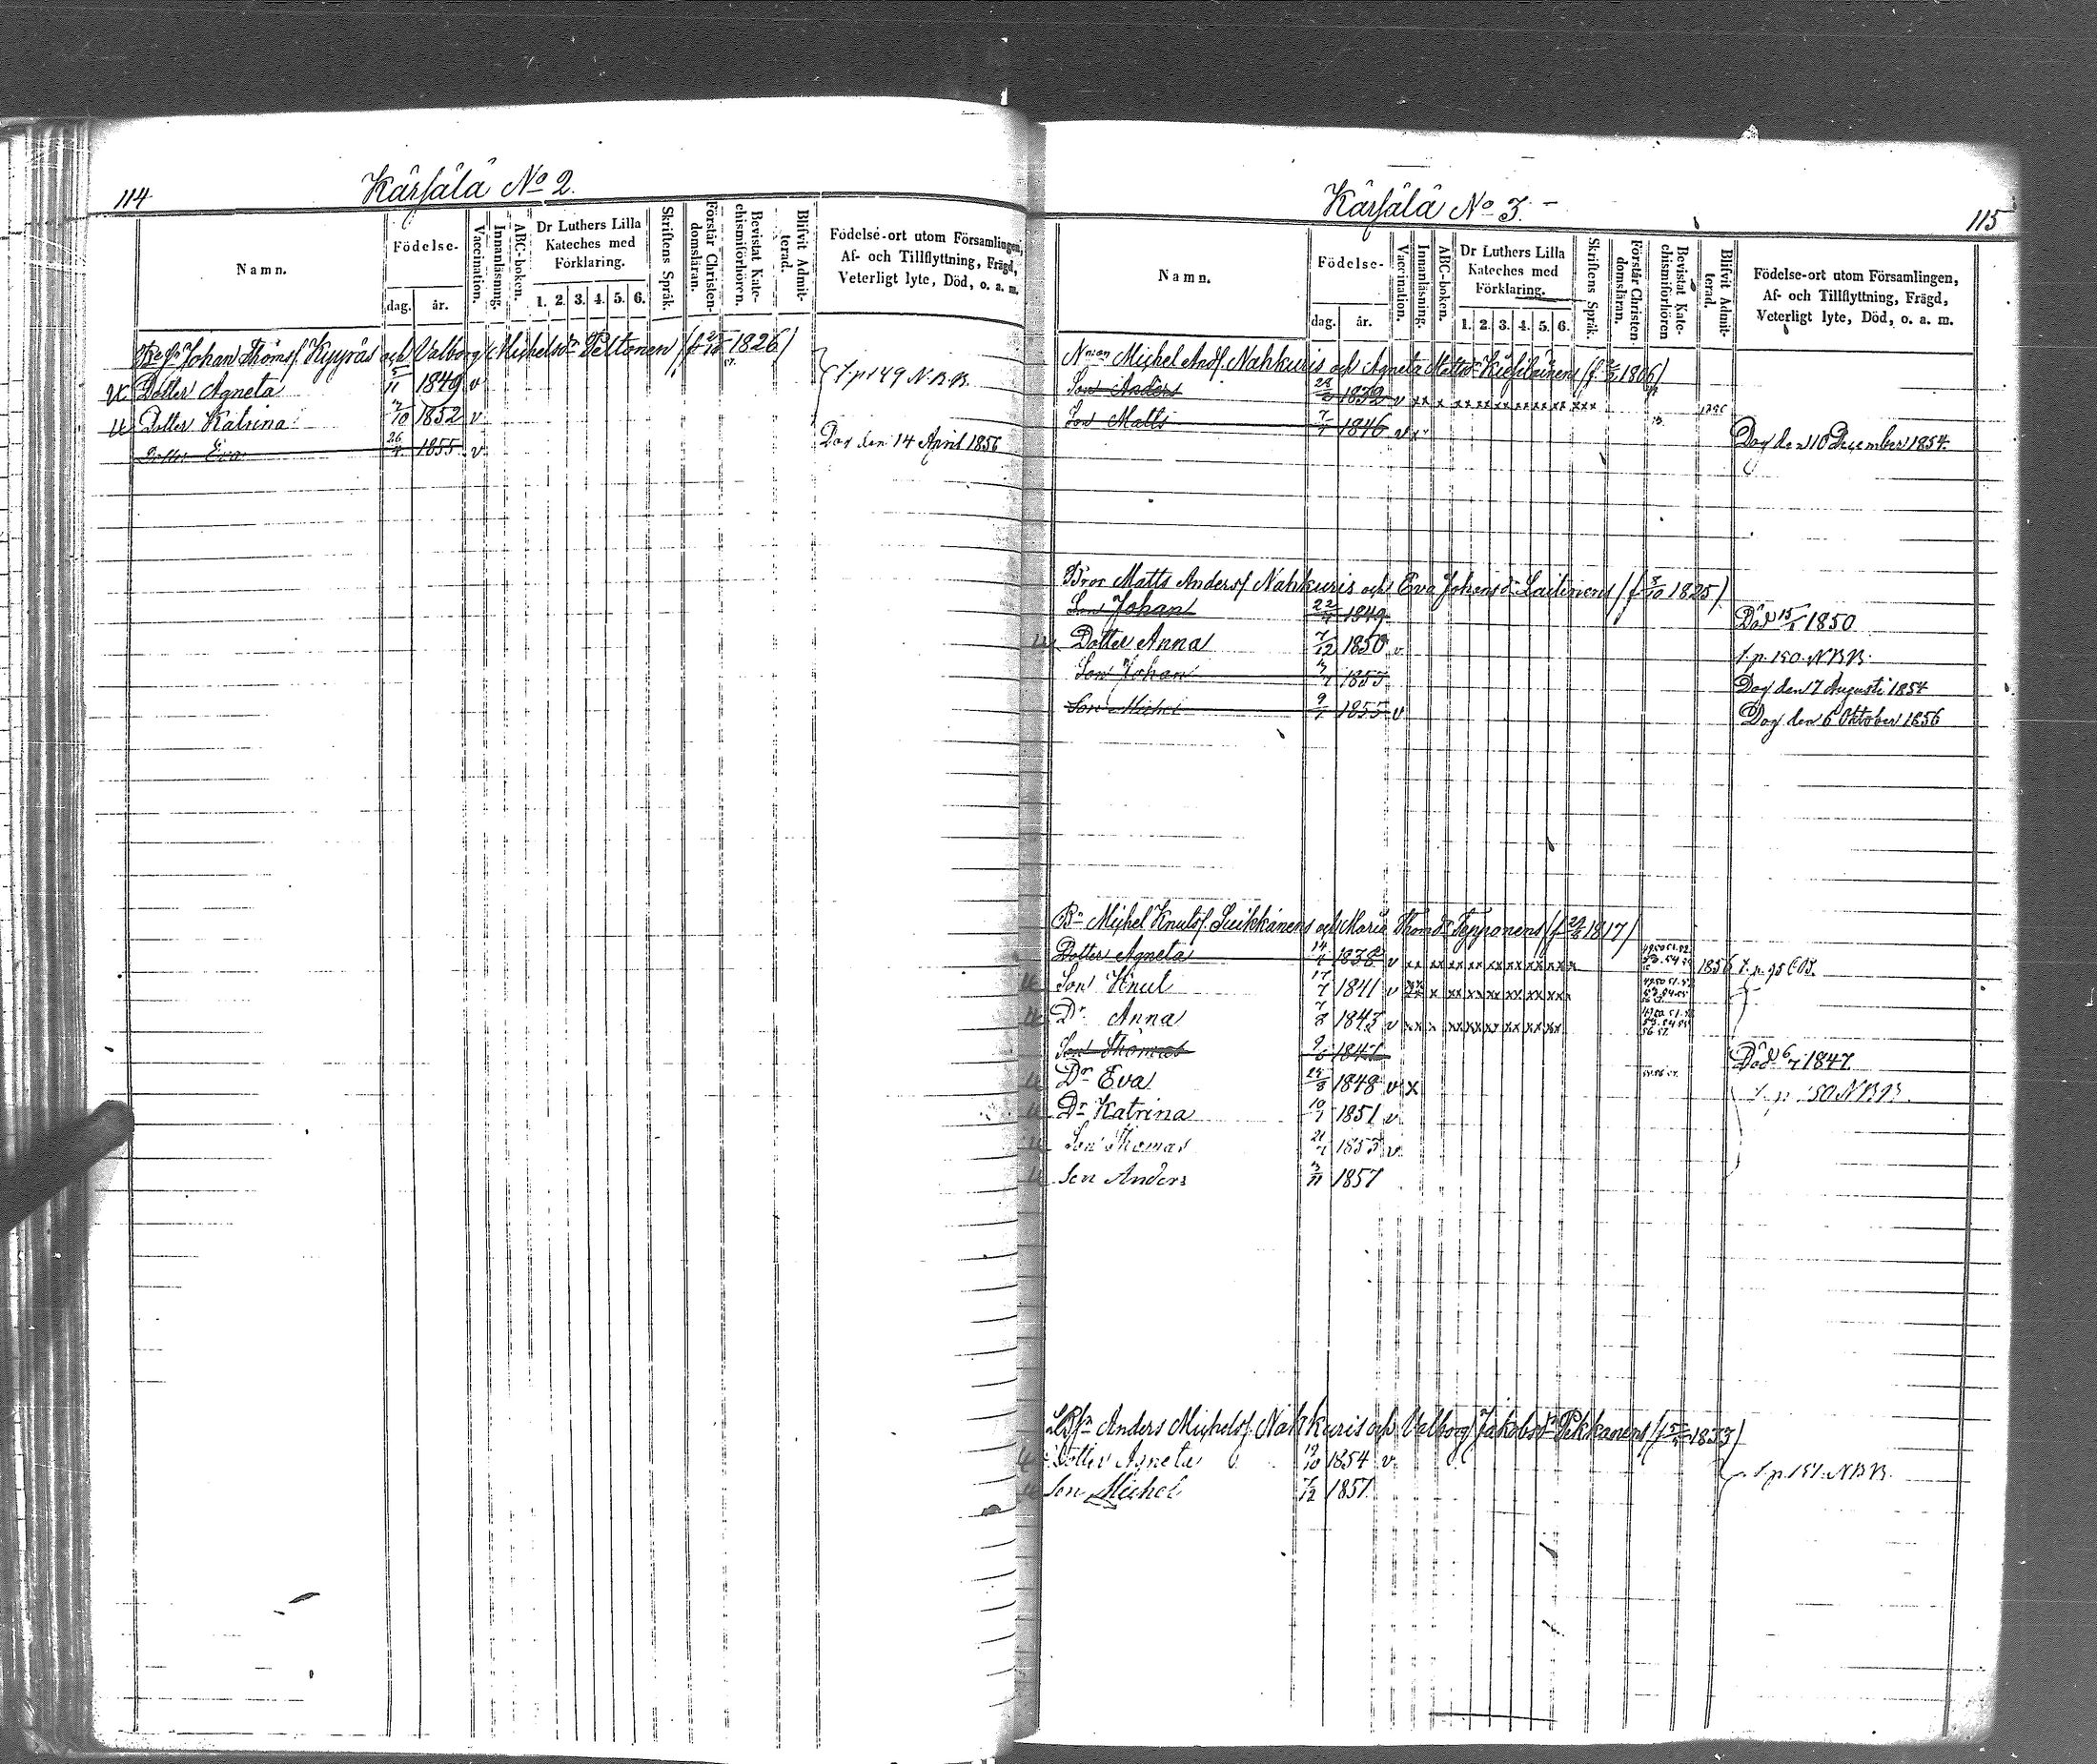 114
Kärsälä No 2.
Namn.
Födelse-
dag. år.
Vaccination.
Innanläsning.
ABC-boken.
Dr Luthers Lilla Kateches med Förklaring.
1. 2. 3. 4. 5. 6.
Skriftens Språk.
Förstår Christen-domsläran.
Bevistat Kate-chismiförhören.
Blifvit Admit-terad.
Födelse-ort utom Församlingen,
Af- och Tillflyttning, Frägd,
Veterligt lyte, Död, o. a. m.
Johan Thomsf. Kyyräs och Valborg Michelsdr Peltonen 1826)
Dotter Agneta 1849 v
t. p 149 N.B.B.
Dotter Katrina 1852 v
Dotter Eva 26/2 1855 v Dog den 14 April 1856
Kärsälä No 3.
115
Namn.
Födelse-
dag. år.
Vaccination.
Innanläsning.
ABC-boken.
Dr Luthers Lilla Kateches med Förklaring.
1. 2. 3. 4. 5. 6.
Skriftens Språk.
Förstår Christen-domsläran.
Bevistat Kate-chismiförhören
Blifvit Admit-terad.
Födelse-ort utom Församlingen,
Af- och Tillflyttning, Frägd,
Veterligt lyte, Död, o. a. m.
Michel Andf. Nahkuris och Agneta 1806)
Son Anders 1832 v xx x xx xx xx xx xx xx xxx
Son Matts 1846 v x Dog den 10 December 1854.
Bror Matts Andersf. Nahkuris och Eva Johansdr Laitinens (f. 8/10 1825)
Son Johan 1849 Död 15/1 1850
Dotter Anna 7/12 1850 v t. p. 150. N.B.B.
Son Johan 1853 Dog den 17 Augusti 1854
Son Michel 1855 v Dog den 6 Oktober 1856
Michel Knutsf. Suikkanens och Maria Thomdr Tepponens 1817)
Dotter Agneta 1838 v xx xx xx xx xx xx xx x 1856
Son Knut 17/7 1841 v
Dr Anna 7/8 1843 v
Son Thomas 1847 Död 6/7 1847.
Dr Eva 1848 v x 150 N.B.B.
Dr Katrina 1851 v
Son Thomas 1853 v
Son Anders 1857
Anders Michelsf. Nahkuris och Valborg Jakobsdr Pekkanens 1833)
Dotter Agneta 1854 v t. p. 151. N.B.B.
Son Michel 1857.